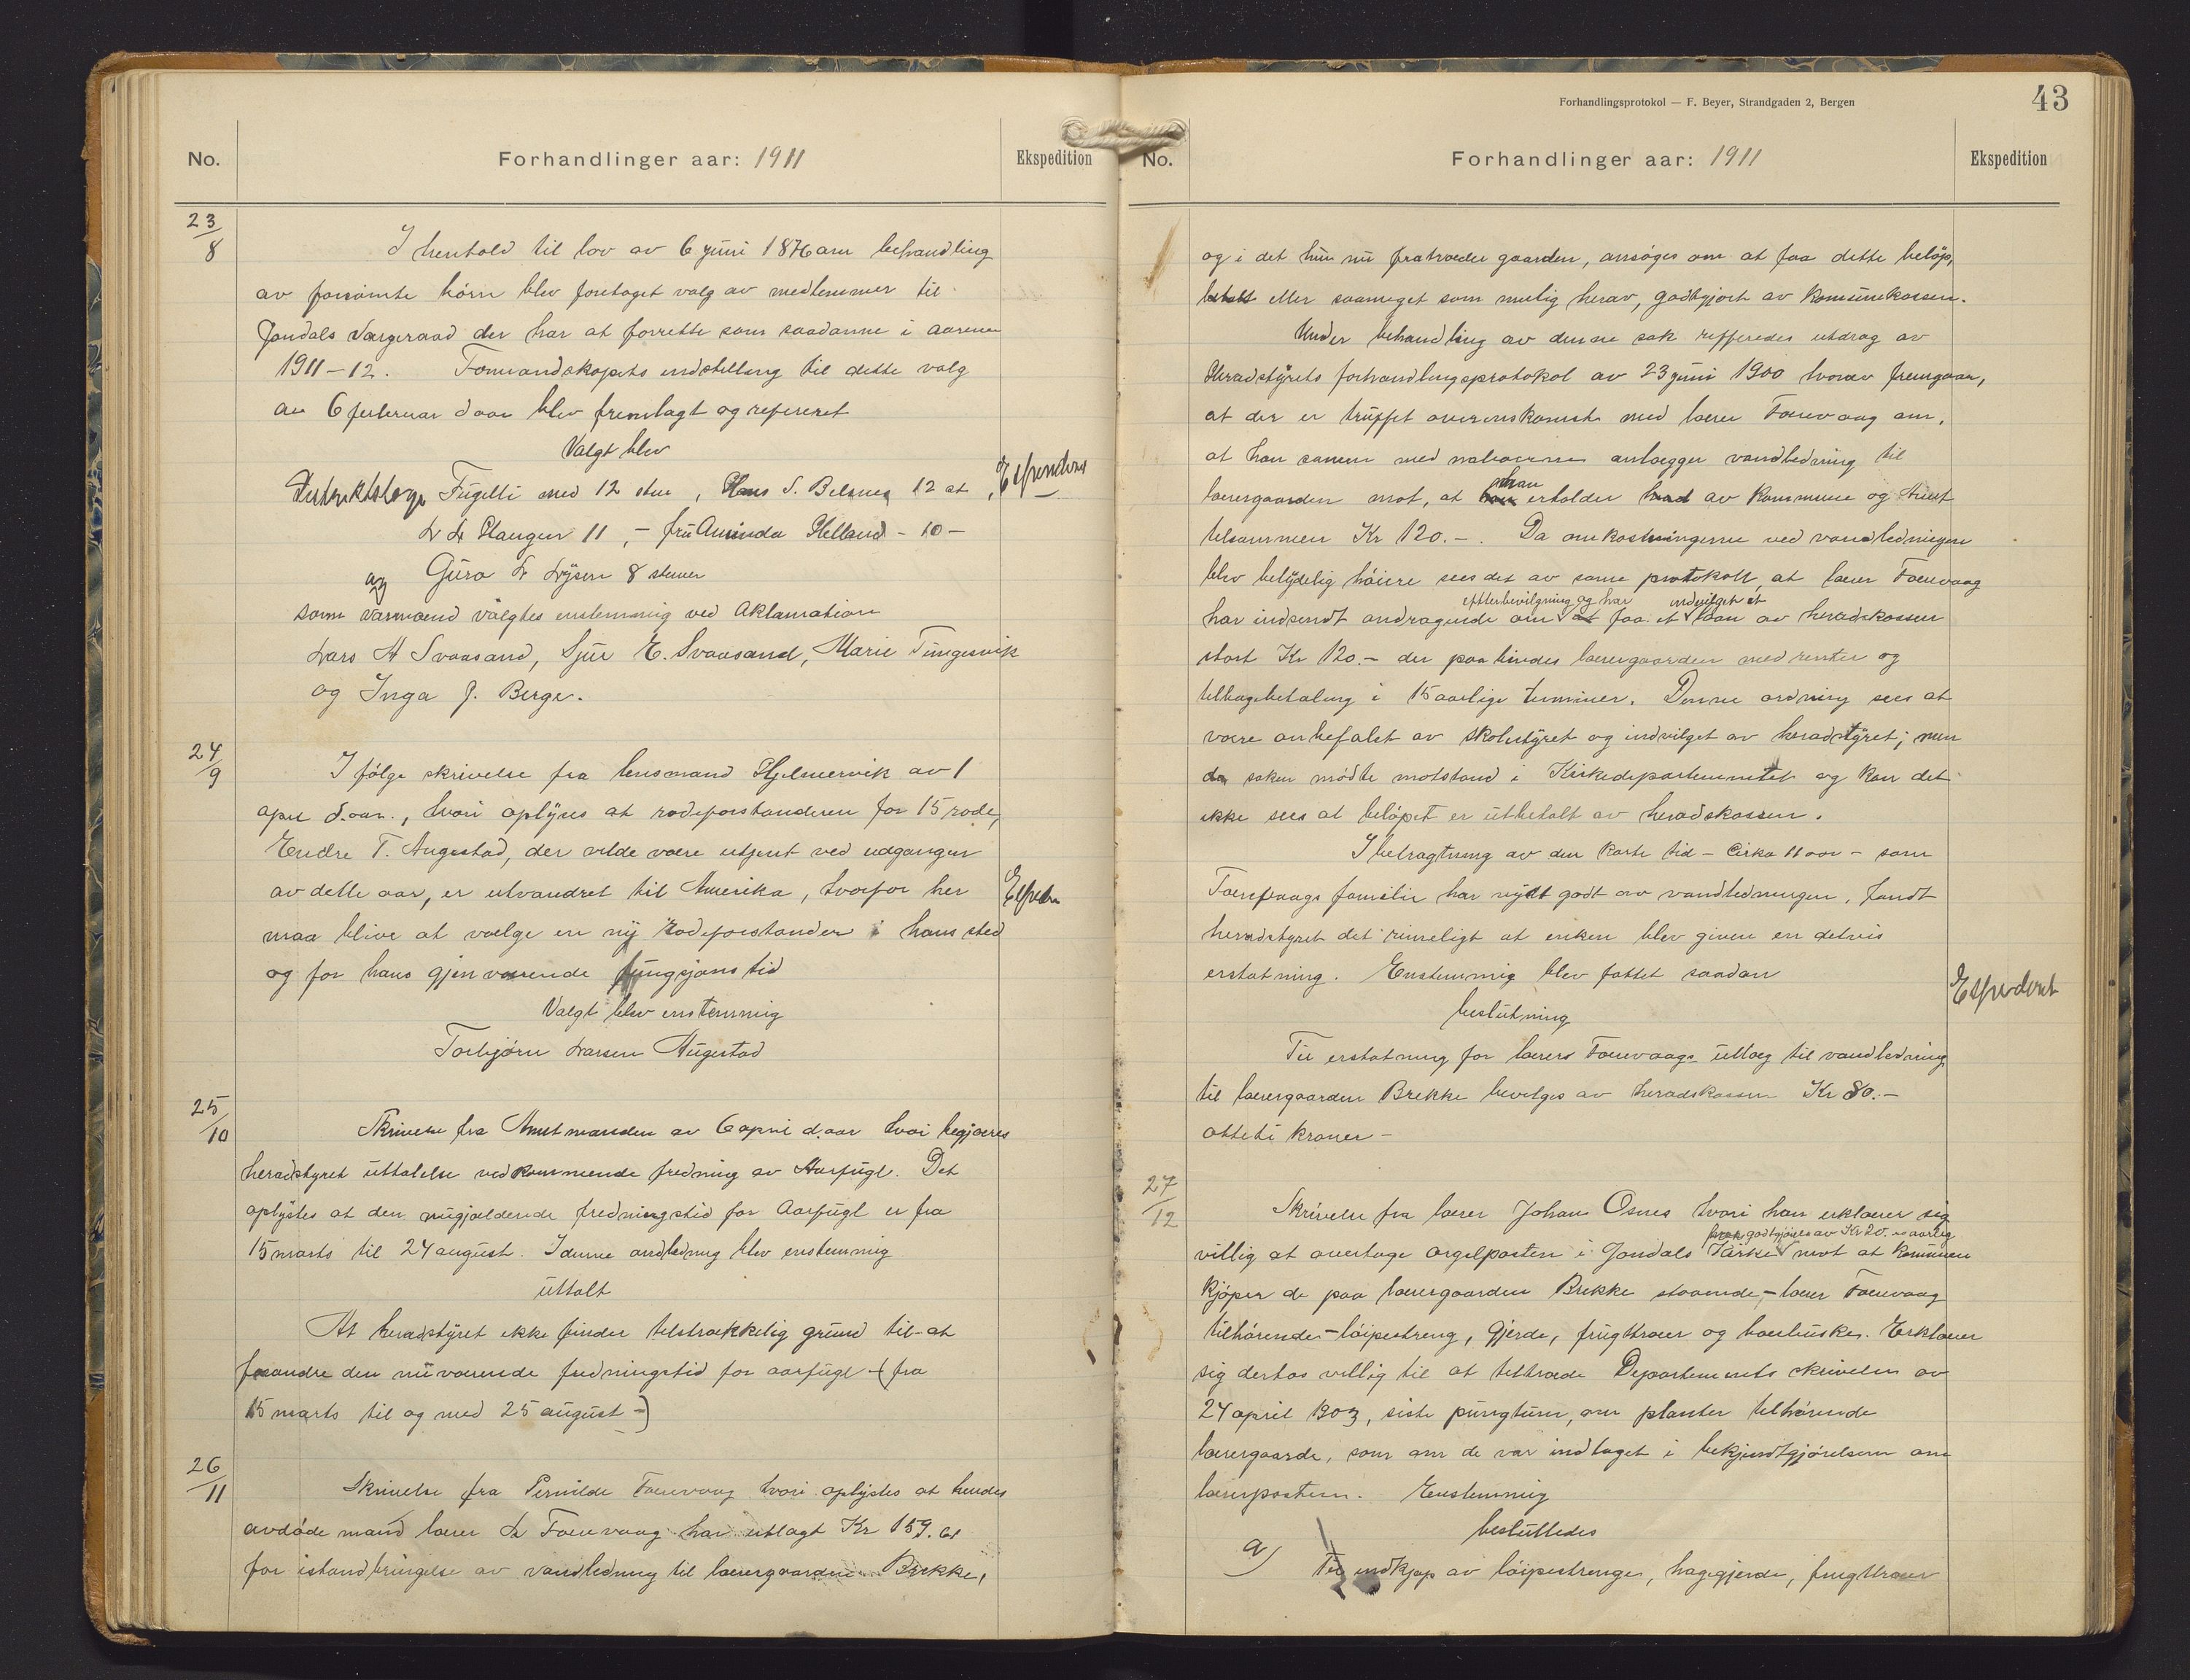 No.
Forhandlinger aar: 1911
Ekspedition
23/8
I henhold til lov av 6 juni 1896 om behandling
av forsømte børn blev foretaget valg av medlemmer til
Jondals Værgeraad der har at forrette som saadanne i aarene
1911-12. Formandskapets indstilling til dette valg
av 6 februar d aar blev fremlagt og refereret
Valgt blev
Distriktslæge Fugelli med 12 stm, Hans S. Belsnes 12 st,
L L Haugen 11,- fru Aminda Helland - 10 -
og Guro L Lysen 8 stemer
som varmænd valgtes enstemmig ved Aklamation
Lars H Svaasand, Sjur E. Svaasand, Marie Tungesvik
og Inga J. Berge.
24/9
I følge skrivelse fra lensmand Hjelmervik av 1
april d.aar., hvori oplyses at rodeforstanderen for 15 rode,
Endre T. Augestad, der vilde være utjent ved udgangen
av dette aar, er utvandret til Amerika, hvorfor her
maa blive at vælge en ny rodeforstander i hans sted
og for hans gjenværende fungsjons tid
Valgt blev enstemmig
Torbjørn Larsen Augestad
25/10
Skrivelse fra Amtmanden av 6 april d.aar hvori begjæres
heradstyret uttalelse vedkommende fredning av Aarfugl. Det
oplystes at den nugjældende fredningstid for Aarfugl er fra
15 marts til 24 august. I denne andledning blev enstemmig
uttalt
At heradstyret ikke finder tilstrækkelig grund til at
forandre den nuværende fredningstid for aarfugl - (fra
15 marts til og med 25 august -)
26/11
Skrivelse fra Pernilde Faervaag hvori oplystes at hendes
avdøde mand lærer L Faervaag har utlagt Kr 159.61
for istandbringelse av vandledning til lærergaarden Brekke,
Forhandlingsprotokol — F. Beyer, Strandgaden 2, Bergen
43
No.
Forhandlinger aar: 1911
Ekspedition
og i det hun nu fratræder gaarden, ansøges om at faa dette beløp,
betalt eller saameget som mulig herav, godtgjort av Komunekassen.
Under behandling av denne sak refferedes utdrag av
Heradstyrets forhandlingsprotokol av 23 juni 1900 hvorav fremgaar,
at der er truffet overenskomst med lærer Faervaag om,
at han samen med naboerne anlægger vandledning til
lærergaarden mot, at han erholder av Kommune og Amt
tilsammen Kr 120.-. Da omkostningerne ved vandledningen
blev betydelig høiere sees det av same protokoll, at lærer Faervaag
efterbevilgning og har indvilget et
har indsendt andragende om at faa et laan av heradskassen
stort Kr 120.- der paa bindes lærergaarden med renter og
tilbagebetaling i 15 aarlige terminer. Denne ordning sees at
være anbefalet av skolestyret og indvilget av heradstyret; men
da saken mødte motstand i Kirkedepartementet og kan det
ikke sees at beløpet er utbetalt av heradskassen.
I betragtning av den korte tid - Cirka 11 aar - som
Faervaags familie har nydt godt av vandledningen, fandt
heradstyret det rimeligt at enken blev given en delvis
erstatning. Enstemmig blev fattet saadan
beslutning
Til erstatning for lærers Faervaags utlæg til vandledning
til lærergaarden Brekke bevilges av heradskassen Kr 80.-
otteti kroner -
27/12
Skrivelse fra lærer Johan Osnes hvori han erklærer sig
godtgjøres av Kr 20.- aarlig
villig at overtage orgelposten i Jondals Kirke mot at komunen
kjøper de paa lærergaarden Brekke staaende, - lærer Faervaag
tilhørende - løipestreng, gjerde, frugttræer og bærbusker. Erklærer
sig derhos villig til at tiltræde Departementets skrivelse av
24 april 1903, siste pungtum, om planter tilhørende
lærergaarde, som om de var indtaget i bekjendtgjørelsen om
lærerposten. Enstemmig
besluttedes
a) Til indkjøp av løipestrenge, hagegjerde, frugttræer